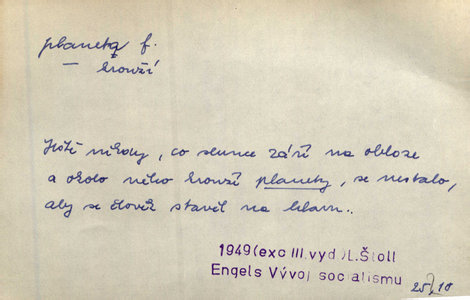 planeta f.
— krouží
Ještě nikdy, co slunce září na obloze
a okolo něho krouží planety, se nestalo,
aby se člověk stavěl na hlavu..
1949 (exc III. vyd) L. Štoll
Engels Vývoj socialismu
25/10